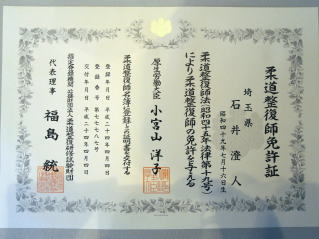 柔道整復師免許証
埼玉県
石井澄人
昭和四十九年七月十六日生
柔道整復師法(昭和四十五年法律第十九号)
により柔道整復師の免許を与える
厚生労働大臣 小宮山洋子
柔道整復師名簿に登録したことを証明する
登録年月日 平成二十四年四月四日
登録番号
交付年月日 平成二十四年四月四日
指定登録機関 公益財団法人柔道整復研修試験財団
代表理事 福島統